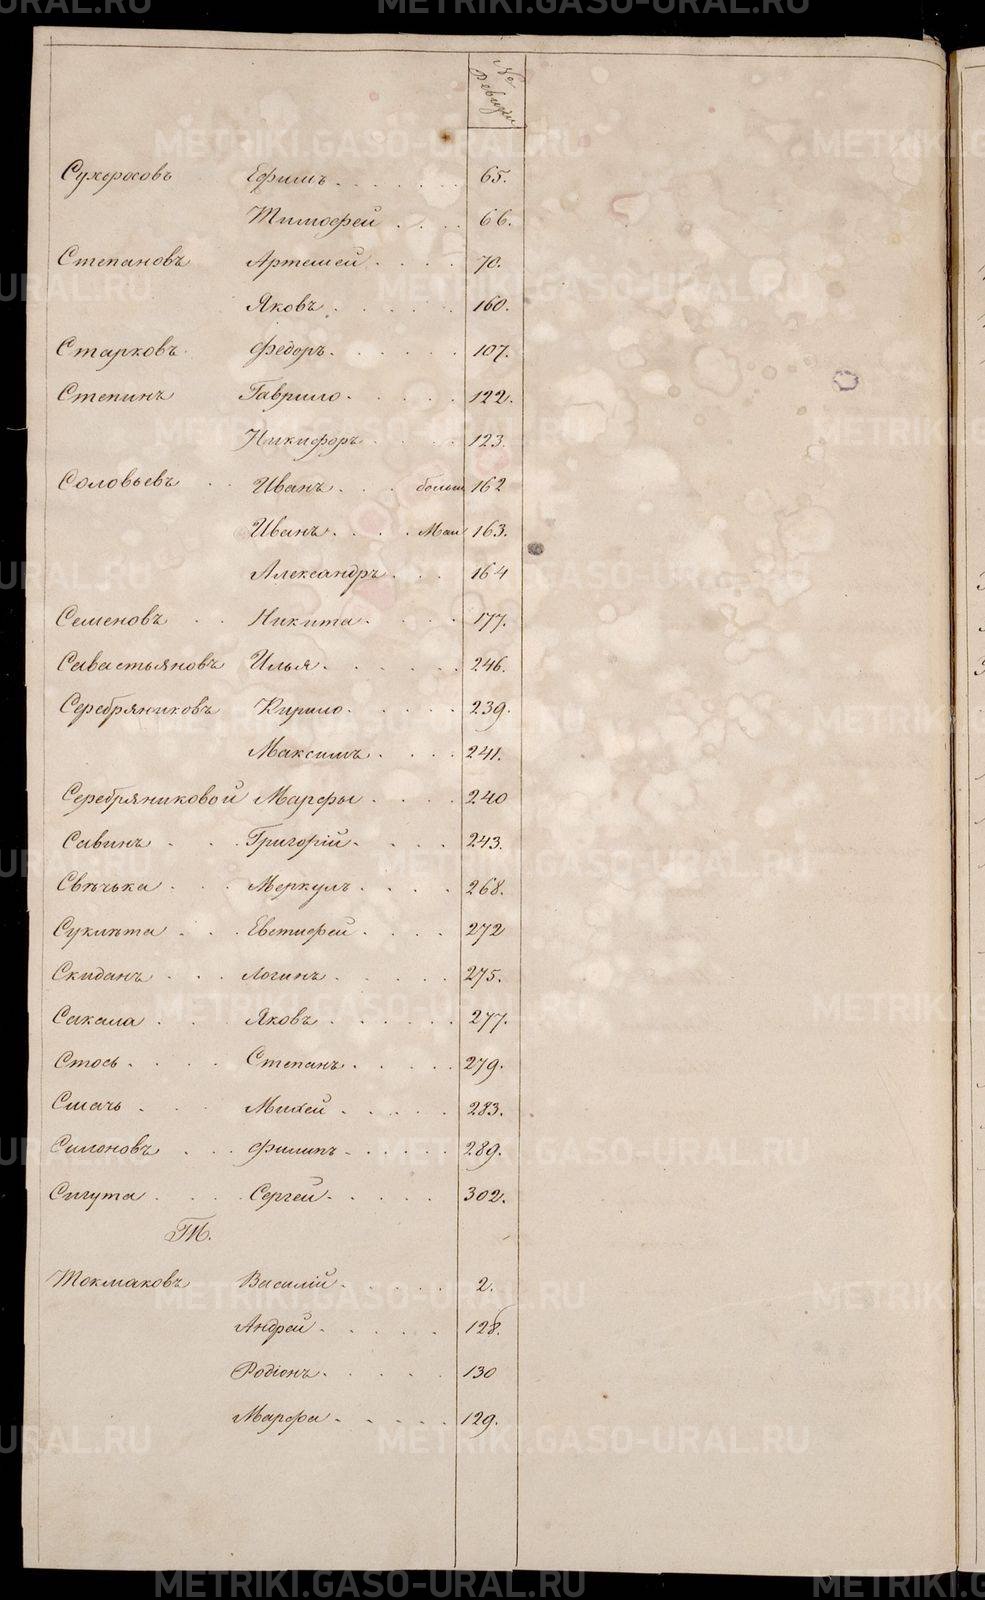 № ревизіи
Сухоросовъ Ефимъ 65.
Тимофей 66.
Степановъ Артемей 70.
Яковъ 160.
Старковъ Федоръ 107.
Степинъ Гаврило 122.
Никифоръ 123.
Соловьевъ Иванъ больш 162
Иванъ Мал 163.
Александръ 164
Семеновъ Никита 177.
Савастьяновъ Илья 246.
Серебряниковъ Кирило 239.
Максимъ 241.
Серебряниковой Марфы 240
Савинъ Григорій 243.
Свѣчька Меркулъ 268.
Сукмѣта Евстифей 272
Скиданъ Логинъ 275.
Сакала Яковъ 277.
Стось Степанъ 279.
Смачь Михей 283.
Симоновъ Филипъ 289.
Сигута Сергей 302.
Т.
Токмаковъ Василій 2.
Андрей 128.
Родіонъ 130
Марфа 129.
METRIKI.GASO-URAL.RU